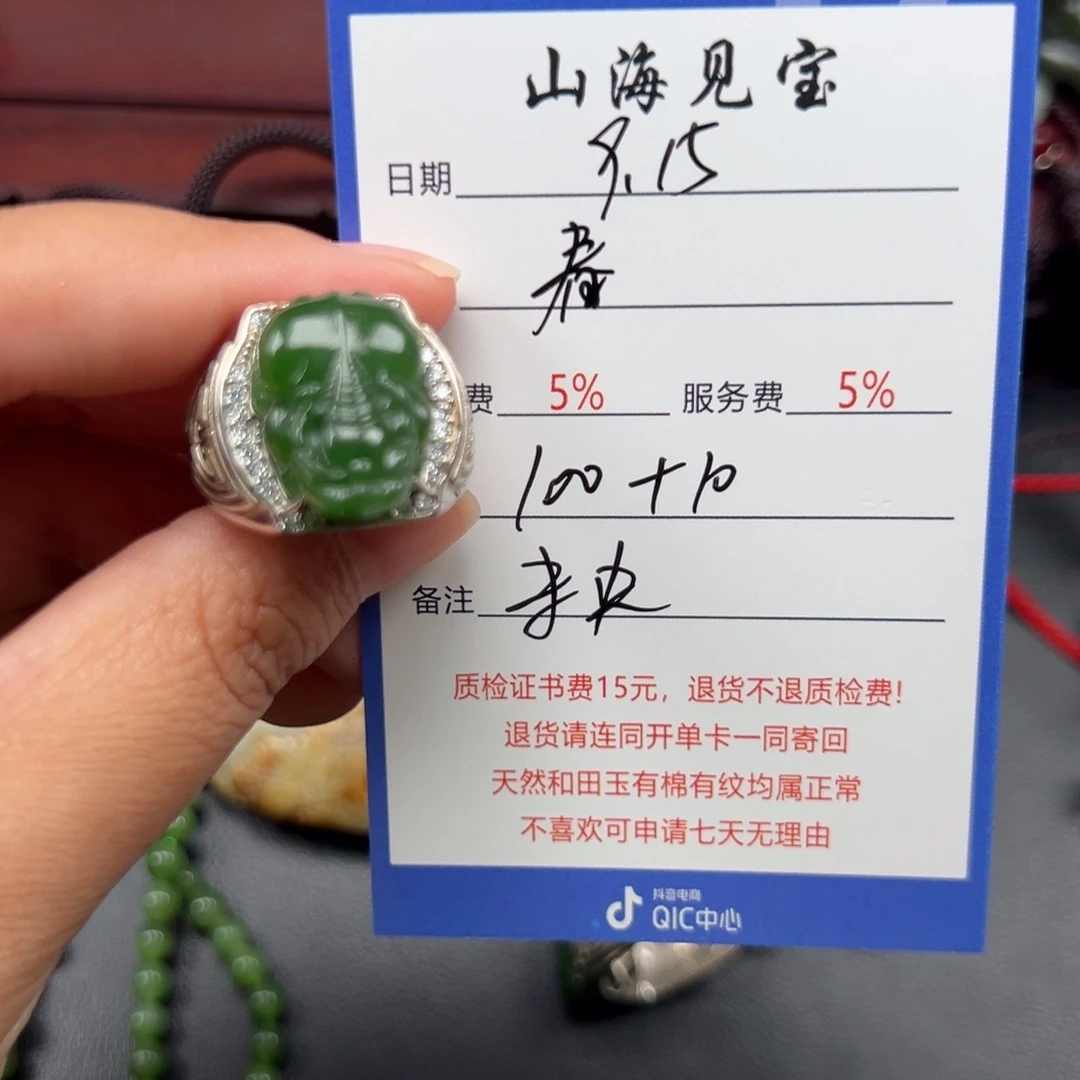 山海见宝
日期 8.15
春
费 5% 服务费 5%
100+10
备注
质检证书费15元，退货不退质检费!
退货请连同开单卡一同寄回
天然和田玉有棉有纹均属正常
不喜欢可申请七天无理由
抖音电商
QIC中心